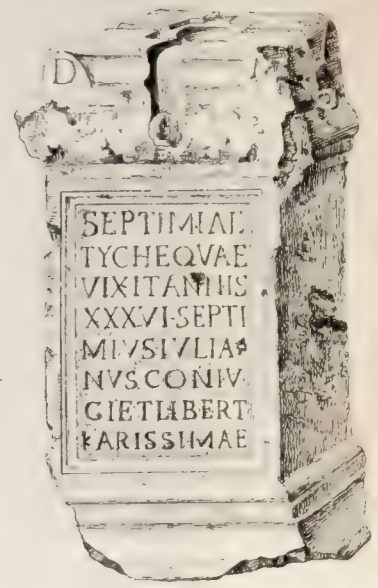 D M
SEPTIMIAE
TYCHE QVAE
VIXIT ANNIS
XXXVI·SEPTI
MIVS IVLIA
NVS CONIV
GI ET LIBERT
KARISSIMAE